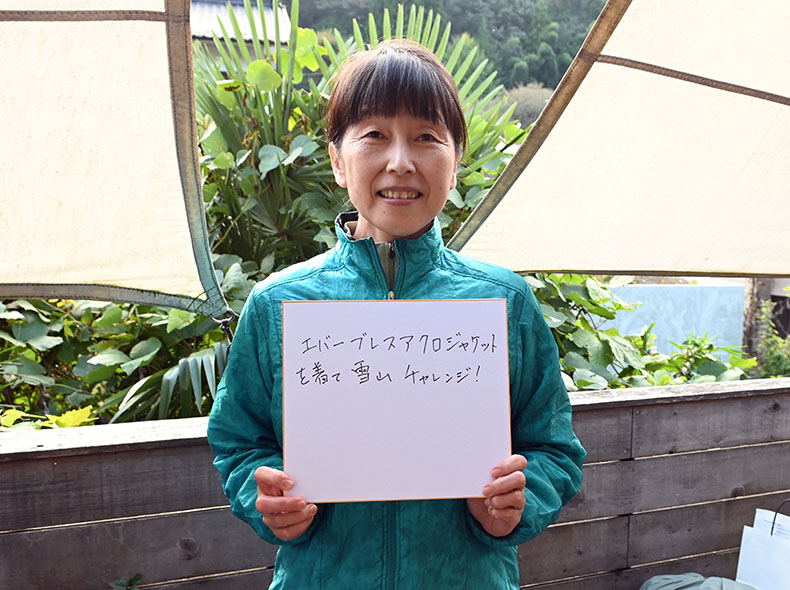 エバーブレスアクロジャケット
を着て 雪山 チャレンジ!